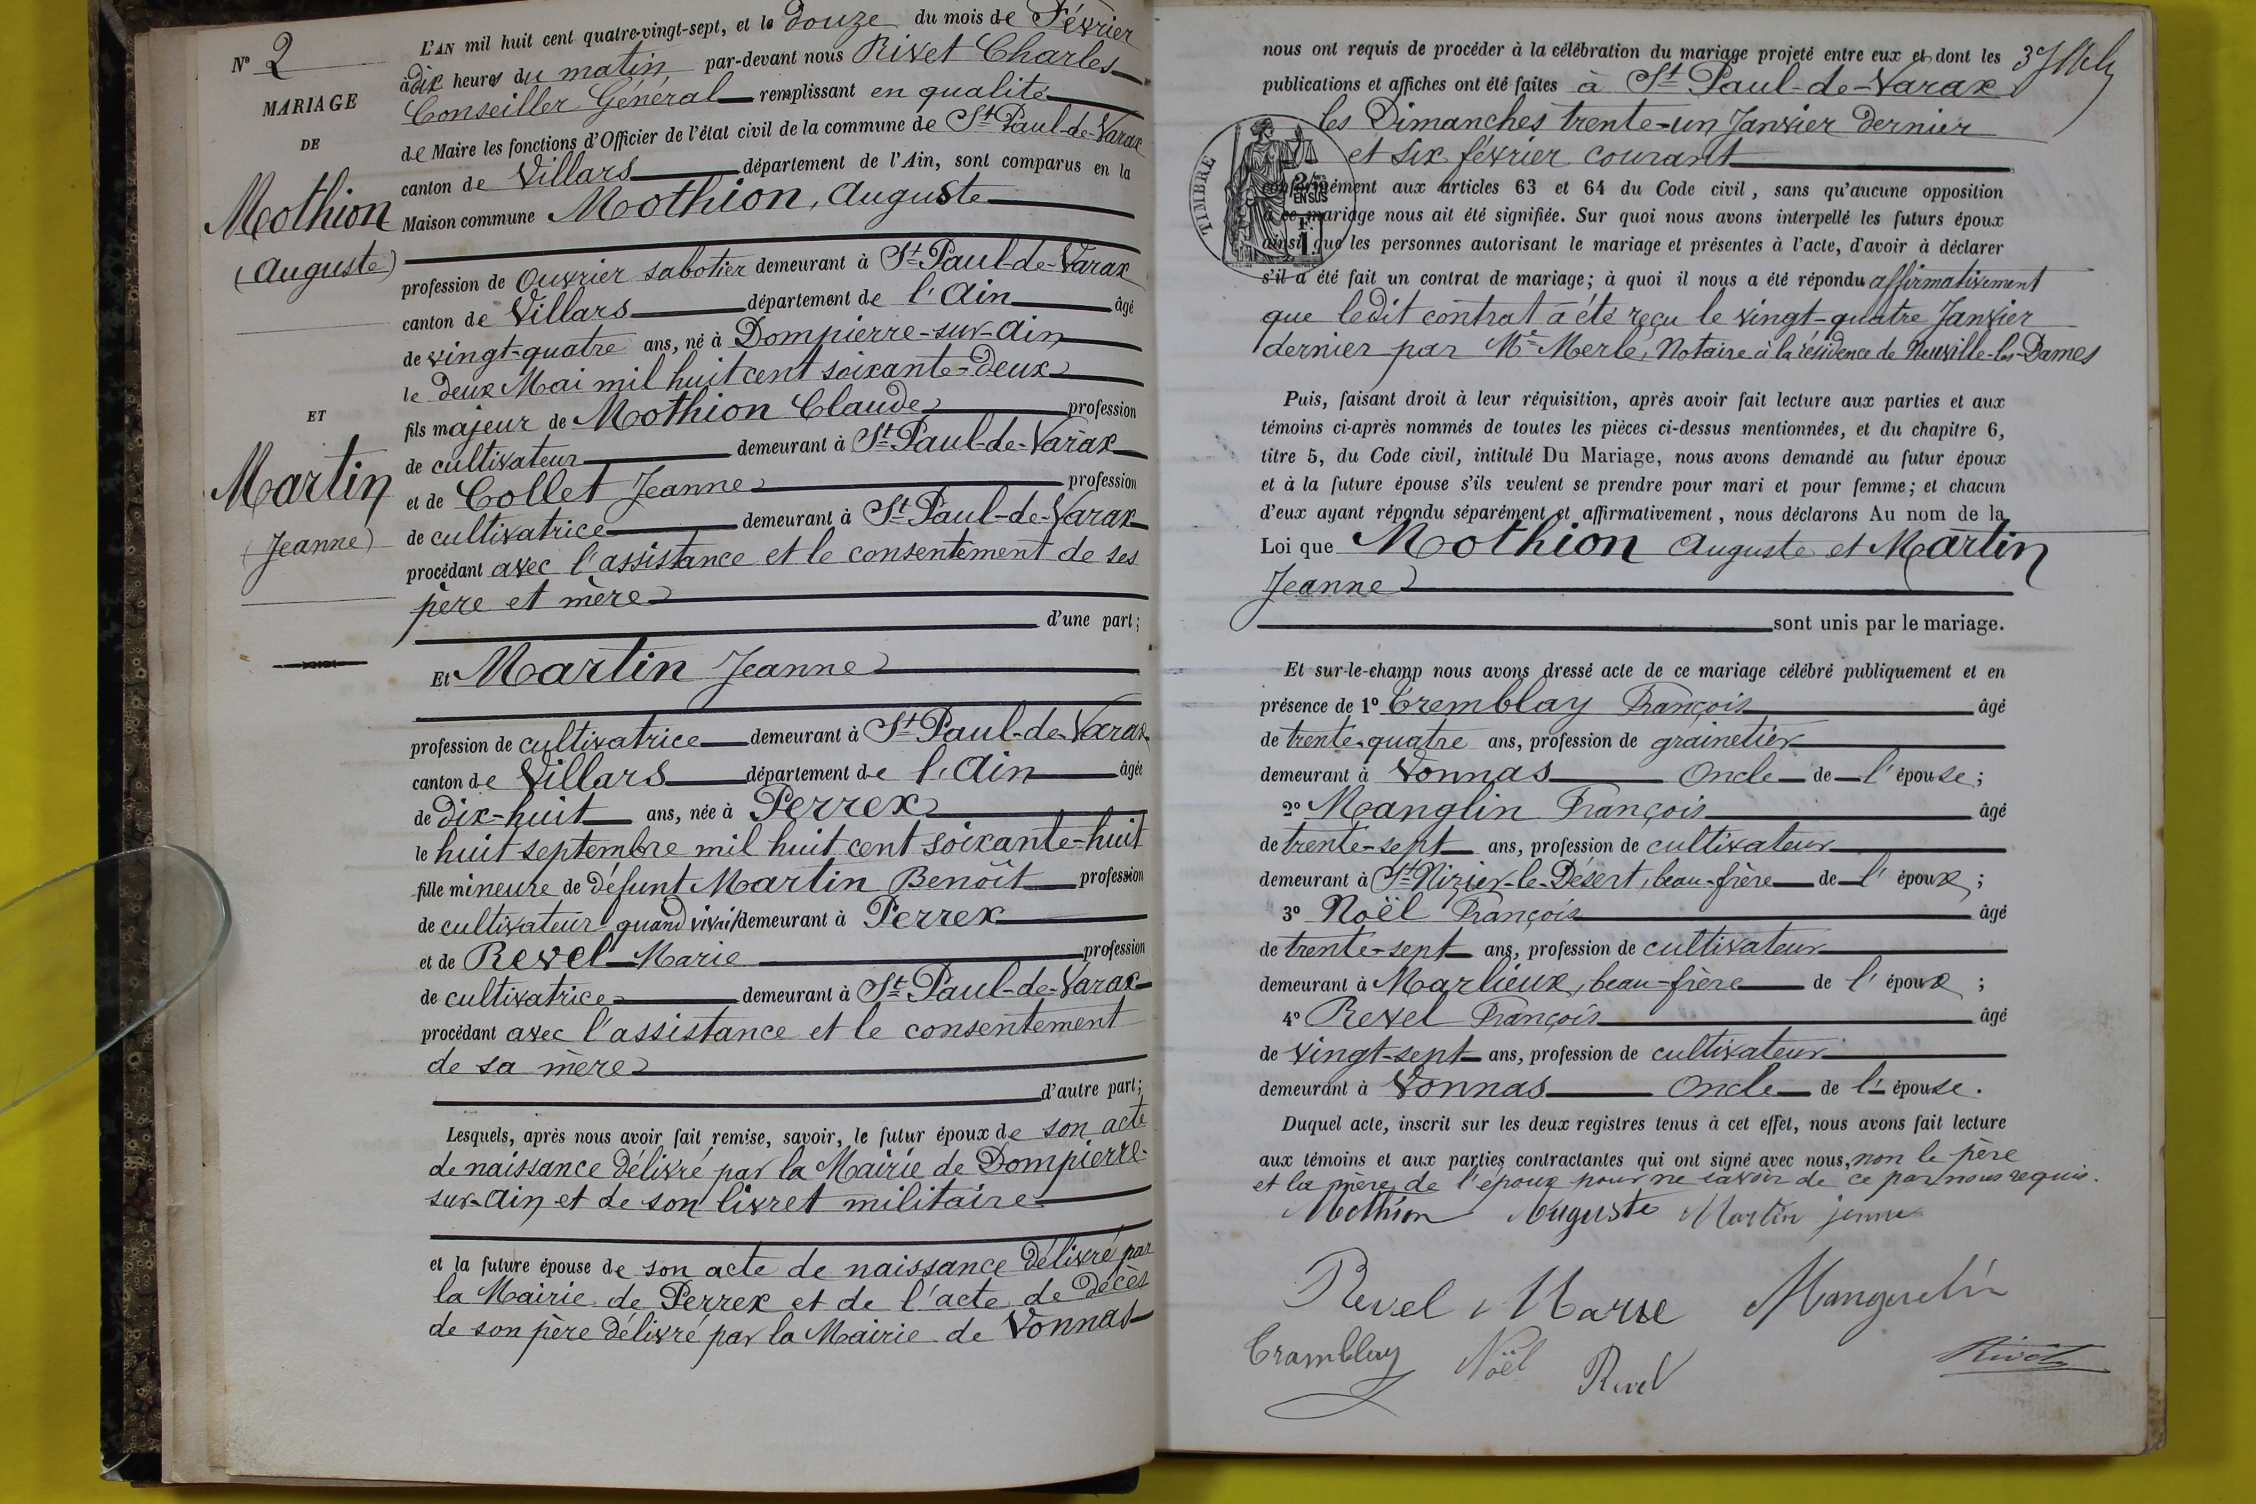 N° 2
MARIAGE
DE
Mothion
(Auguste)
ET
Martin
(Jeanne)
L'AN mil huit cent quatre-vingt-sept, et le douze du mois de Février
à dix heures du matin par-devant nous Rivet Charles
Conseiller Général remplissant en qualité
de Maire les fonctions d'Officier de l'état civil de la commune de St Paul-de-Varax
canton de Villars département de l'Ain, sont comparus en la
Maison commune Mothion, Auguste
profession de Ouvrier sabotier demeurant à St Paul-de-Varax
canton de Villars département de l'Ain âgé
de vingt-quatre ans, né à Dompierre-sur-Ain
le deux Mai mil huit cent soixante-deux
fils majeur de Mothion Claude profession
de cultivateur demeurant à St Paul-de-Varax
et de Collet Jeanne profession
de cultivatrice demeurant à St Paul-de-Varax
procédant avec l'assistance et le consentement de ses
père et mère
d'une part;
Et Martin Jeanne
profession de cultivatrice demeurant à St Paul-de-Varax
canton de Villars département de l'Ain âgée
de dix-huit ans, née à Perrex
le huit septembre mil huit cent soixante-huit
fille mineure de défunt Martin Benoît profession
de cultivateur quand vivait demeurant à Perrex
et de Revel Marie profession
de cultivatrice demeurant à St Paul-de-Varax
procédant avec l'assistance et le consentement
de sa mère
d'autre part;
Lesquels, après nous avoir fait remise, savoir, le futur époux de son acte
de naissance délivré par la Mairie de Dompierre-
sur-Ain et de son livret militaire
et la future épouse de son acte de naissance délivré par
la Mairie de Perrex et de l'acte de décès
de son père délivré par la Mairie de Vonnas
nous ont requis de procéder à la célébration du mariage projeté entre eux et dont les
publications et affiches ont été faites à St Paul-de-Varax
les Dimanches trente-un Janvier dernier
et six février courant
conformément aux articles 63 et 64 du Code civil, sans qu'aucune opposition
à ce mariage nous ait été signifiée. Sur quoi nous avons interpellé les futurs époux
ainsi que les personnes autorisant le mariage et présentes à l'acte, d'avoir à déclarer
s'il a été fait un contrat de mariage; à quoi il nous a été répondu affirmativement
que ledit contrat a été reçu le vingt-quatre Janvier
dernier par Me Merle, Notaire à la résidence de Neuville-les-Dames
TIMBRE
2/10es
EN SUS
F.
1.
Puis, faisant droit à leur réquisition, après avoir fait lecture aux parties et aux
témoins ci-après nommés de toutes les pièces ci-dessus mentionnées, et du chapitre 6,
titre 5, du Code civil, intitulé Du Mariage, nous avons demandé au futur époux
et à la future épouse s'ils veulent se prendre pour mari et pour femme; et chacun
d'eux ayant répondu séparément et affirmativement, nous déclarons Au nom de la
Loi que Mothion Auguste et Martin
Jeanne
sont unis par le mariage.
Et sur-le-champ nous avons dressé acte de ce mariage célébré publiquement et en
présence de 1° Tremblay François âgé
de trente-quatre ans, profession de grainetier
demeurant à Vonnas Oncle de l'épouse;
2° Manglin François âgé
de trente-sept ans, profession de cultivateur
demeurant à St Nizier-le-Désert, beau-frère de l'époux;
3° Noël François âgé
de trente-sept ans, profession de cultivateur
demeurant à Marlieux, beau-frère de l'époux;
4° Revel François âgé
de vingt-sept ans, profession de cultivateur
demeurant à Vonnas Oncle de l'épouse.
Duquel acte, inscrit sur les deux registres tenus à cet effet, nous avons fait lecture
aux témoins et aux parties contractantes qui ont signé avec nous, non le père
et la mère de l'époux pour ne savoir de ce par nous requis.
Mothion Auguste Martin jenne
Revel Marie Manguelin
Cramblay Noël Revel Rivet